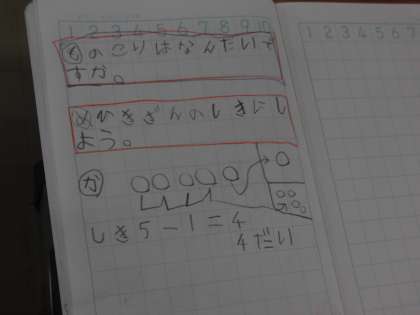 1 2 3 4 5 6 7 8 9 10
1 2 3 4 5 6 7
も のこりはなんだいで
すか。
め ひきざんのしきにし
よう。
か
しき 5-1=4
4だい